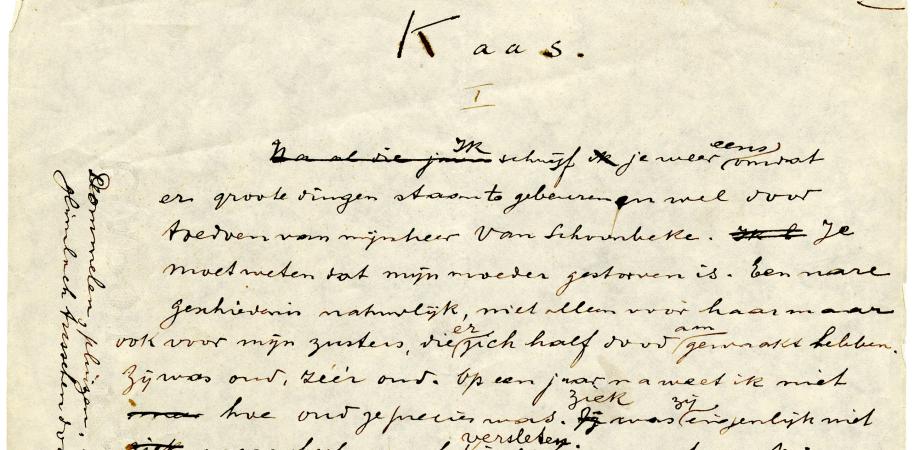 Kaas.
I
Na al die jaren Ik schrijf ik je weer eens omdat
er groote dingen staan te gebeuren en wel door
toedoen van mijnheer Van Schoonbeke. Ik b Je
moet weten dat mijn moeder gestorven is. Een nare
geschiedenis natuurlijk, niet alleen voor haar maar
ook voor mijn zusters, die er zich half dood am gewaakt hebben.
Zij was oud, zéér oud. Op een jaar na weet ik niet
maar hoe oud ze precies was. Zij ziek was zij eigenlijk niet
ziek versleten.
Dommelen, pluizen,
Glimlach tusschen